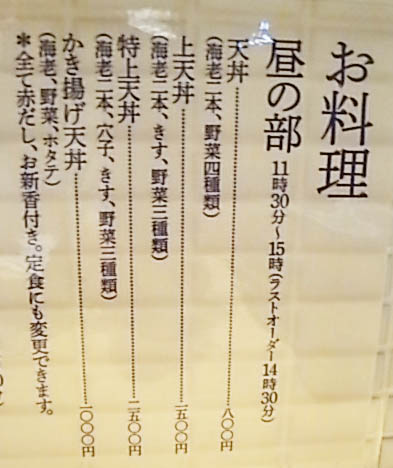 お料理
昼の部 11時30分〜15時(ラストオーダー14時30分)
天丼 八〇〇円
(海老二本、野菜四種類)
上天丼 一五〇〇円
(海老二本、きす、野菜三種類)
特上天丼 二五〇〇円
(海老二本、穴子、きす、野菜三種類)
かき揚げ天丼 一〇〇〇円
(海老、野菜、ホタテ)
*全て赤だし、お新香付き。定食にも変更できます。